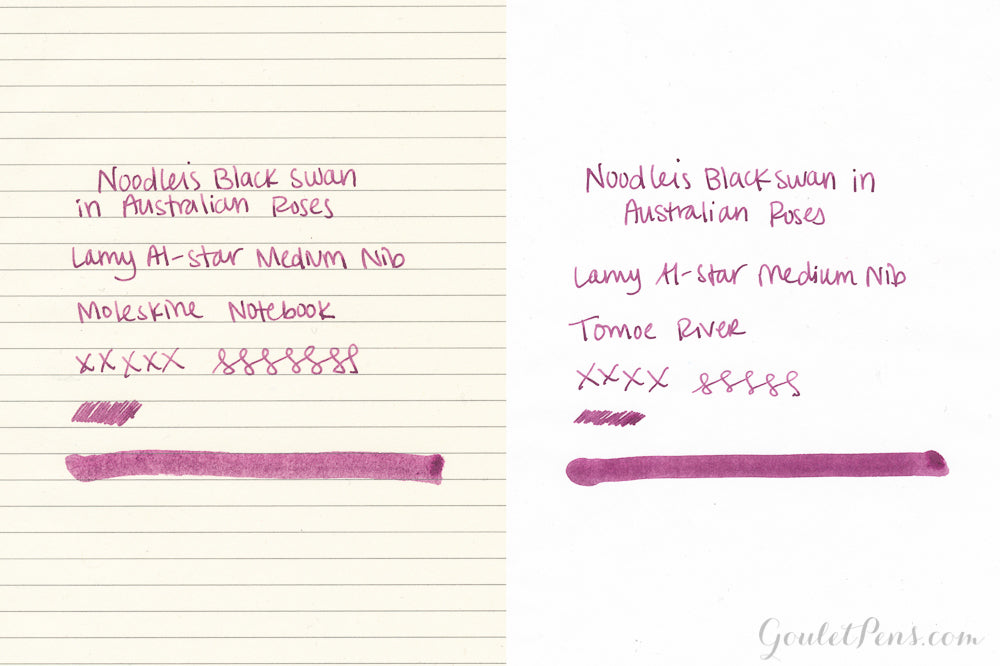 Noodler's Black Swan
in Australian Roses
Lamy Al-Star Medium Nib
Moleskine Notebook
XXXXX SSSSSSS
Noodler's Black Swan in
Australian Roses
Lamy Al-Star Medium Nib
Tomoe River
XXXX SSSSS
GouletPens.com